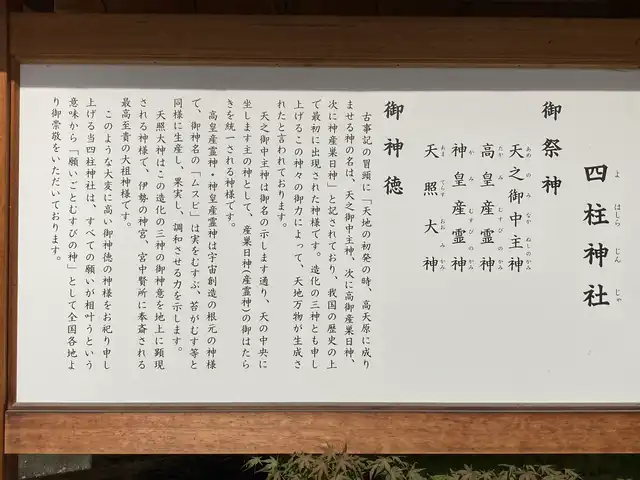 四柱神社
よはしらじんじゃ
御祭神
天之御中主神
あめのみなかぬしのかみ
高皇産霊神
たかみむすびのかみ
神皇産霊神
かみむすびのかみ
天照大神
あまてらすおおみかみ
御神徳
古事記の冒頭に「天地の初発の時、高天原に成り
ませる神の名は、天之御中主神、次に高御産巣日神、
次に神産巣日神」と記されており、我国の歴史の上
で最初に出現された神様です。造化の三神とも申し
上げるこの神々の御力によって、天地万物が生成さ
れたと言われております。
天之御中主神は御名の示します通り、天の中央に
坐します主の神として、産巣日神(産霊神)の御はたら
きを統一される神様です。
高皇産霊神・神皇産霊神は宇宙創造の根元の神様
で、御神名の「ムスビ」は実をむすぶ、苔がむす等と
同様に生産し、果実し、調和させる力を示します。
天照大神はこの造化の三神の御神意を地上に顕現
される神様で、伊勢の神宮、宮中賢所に奉斎される
最高至貴の大祖神様です。
このような大変に高い御神徳の神様をお祀り申し
上げる当四柱神社は、すべての願いが相叶うという
意味から「願いごとむすびの神」として全国各地よ
り御崇敬をいただいております。